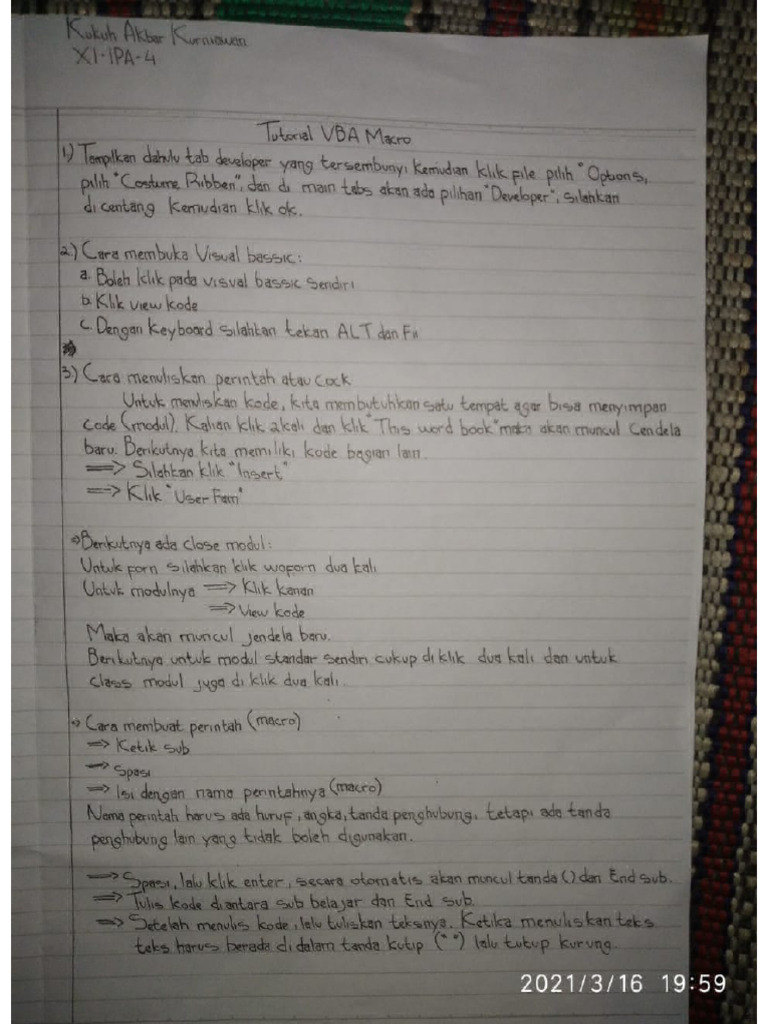 Kukuh Akbar Kurniawan
XI-IPA-4
Tutorial VBA Macro
1.) Tampilkan dahulu tab developer yang tersembunyi kemudian klik file pilih "Options,
pilih "Costume Ribben", dan di main tabs akan ada pilihan "Developer", silahkan
di centang kemudian klik ok.
2.) Cara membuka Visual bassic:
a. Boleh klik pada visual bassic sendiri
b. Klik view kode
c. Dengan keyboard silahkan tekan ALT dan F11
3.) Cara menuliskan perintah atau cock
Untuk menuliskan kode, kita membutuhkan satu tempat agar bisa menyimpan
code (modul). Kalian klik 2 kali dan klik "This word book" maka akan muncul Cendela
baru. Berikutnya kita memiliki kode bagian lain.
⇒ Silahkan klik "Insert"
⇒ Klik "User Fom"
⇒ Berikutnya ada close modul:
Untuk forn silahkan klik woforn dua kali
Untuk modulnya ⇒ Klik kanan
⇒ View kode
Maka akan muncul jendela baru.
Berikutnya untuk modul standar sendiri cukup di klik dua kali dan untuk
class modul juga di klik dua kali.
⇒ Cara membuat perintah (macro)
⇒ Ketik sub
⇒ Spasi
⇒ Isi dengan nama perintahnya (macro)
Nama perintah harus ada huruf, angka, tanda penghubung, tetapi ada tanda
penghubung lain yang tidak boleh digunakan.
⇒ Spasi, lalu klik enter, secara otomatis akan muncul tanda () dan End sub.
⇒ Tulis kode diantara sub belajar dan End sub.
⇒ Setelah menulis kode, lalu tuliskan teksnya. Ketika menuliskan teks
teks harus berada di dalam tanda kutip (" ") lalu tutup kurung.
2021/3/16 19:59